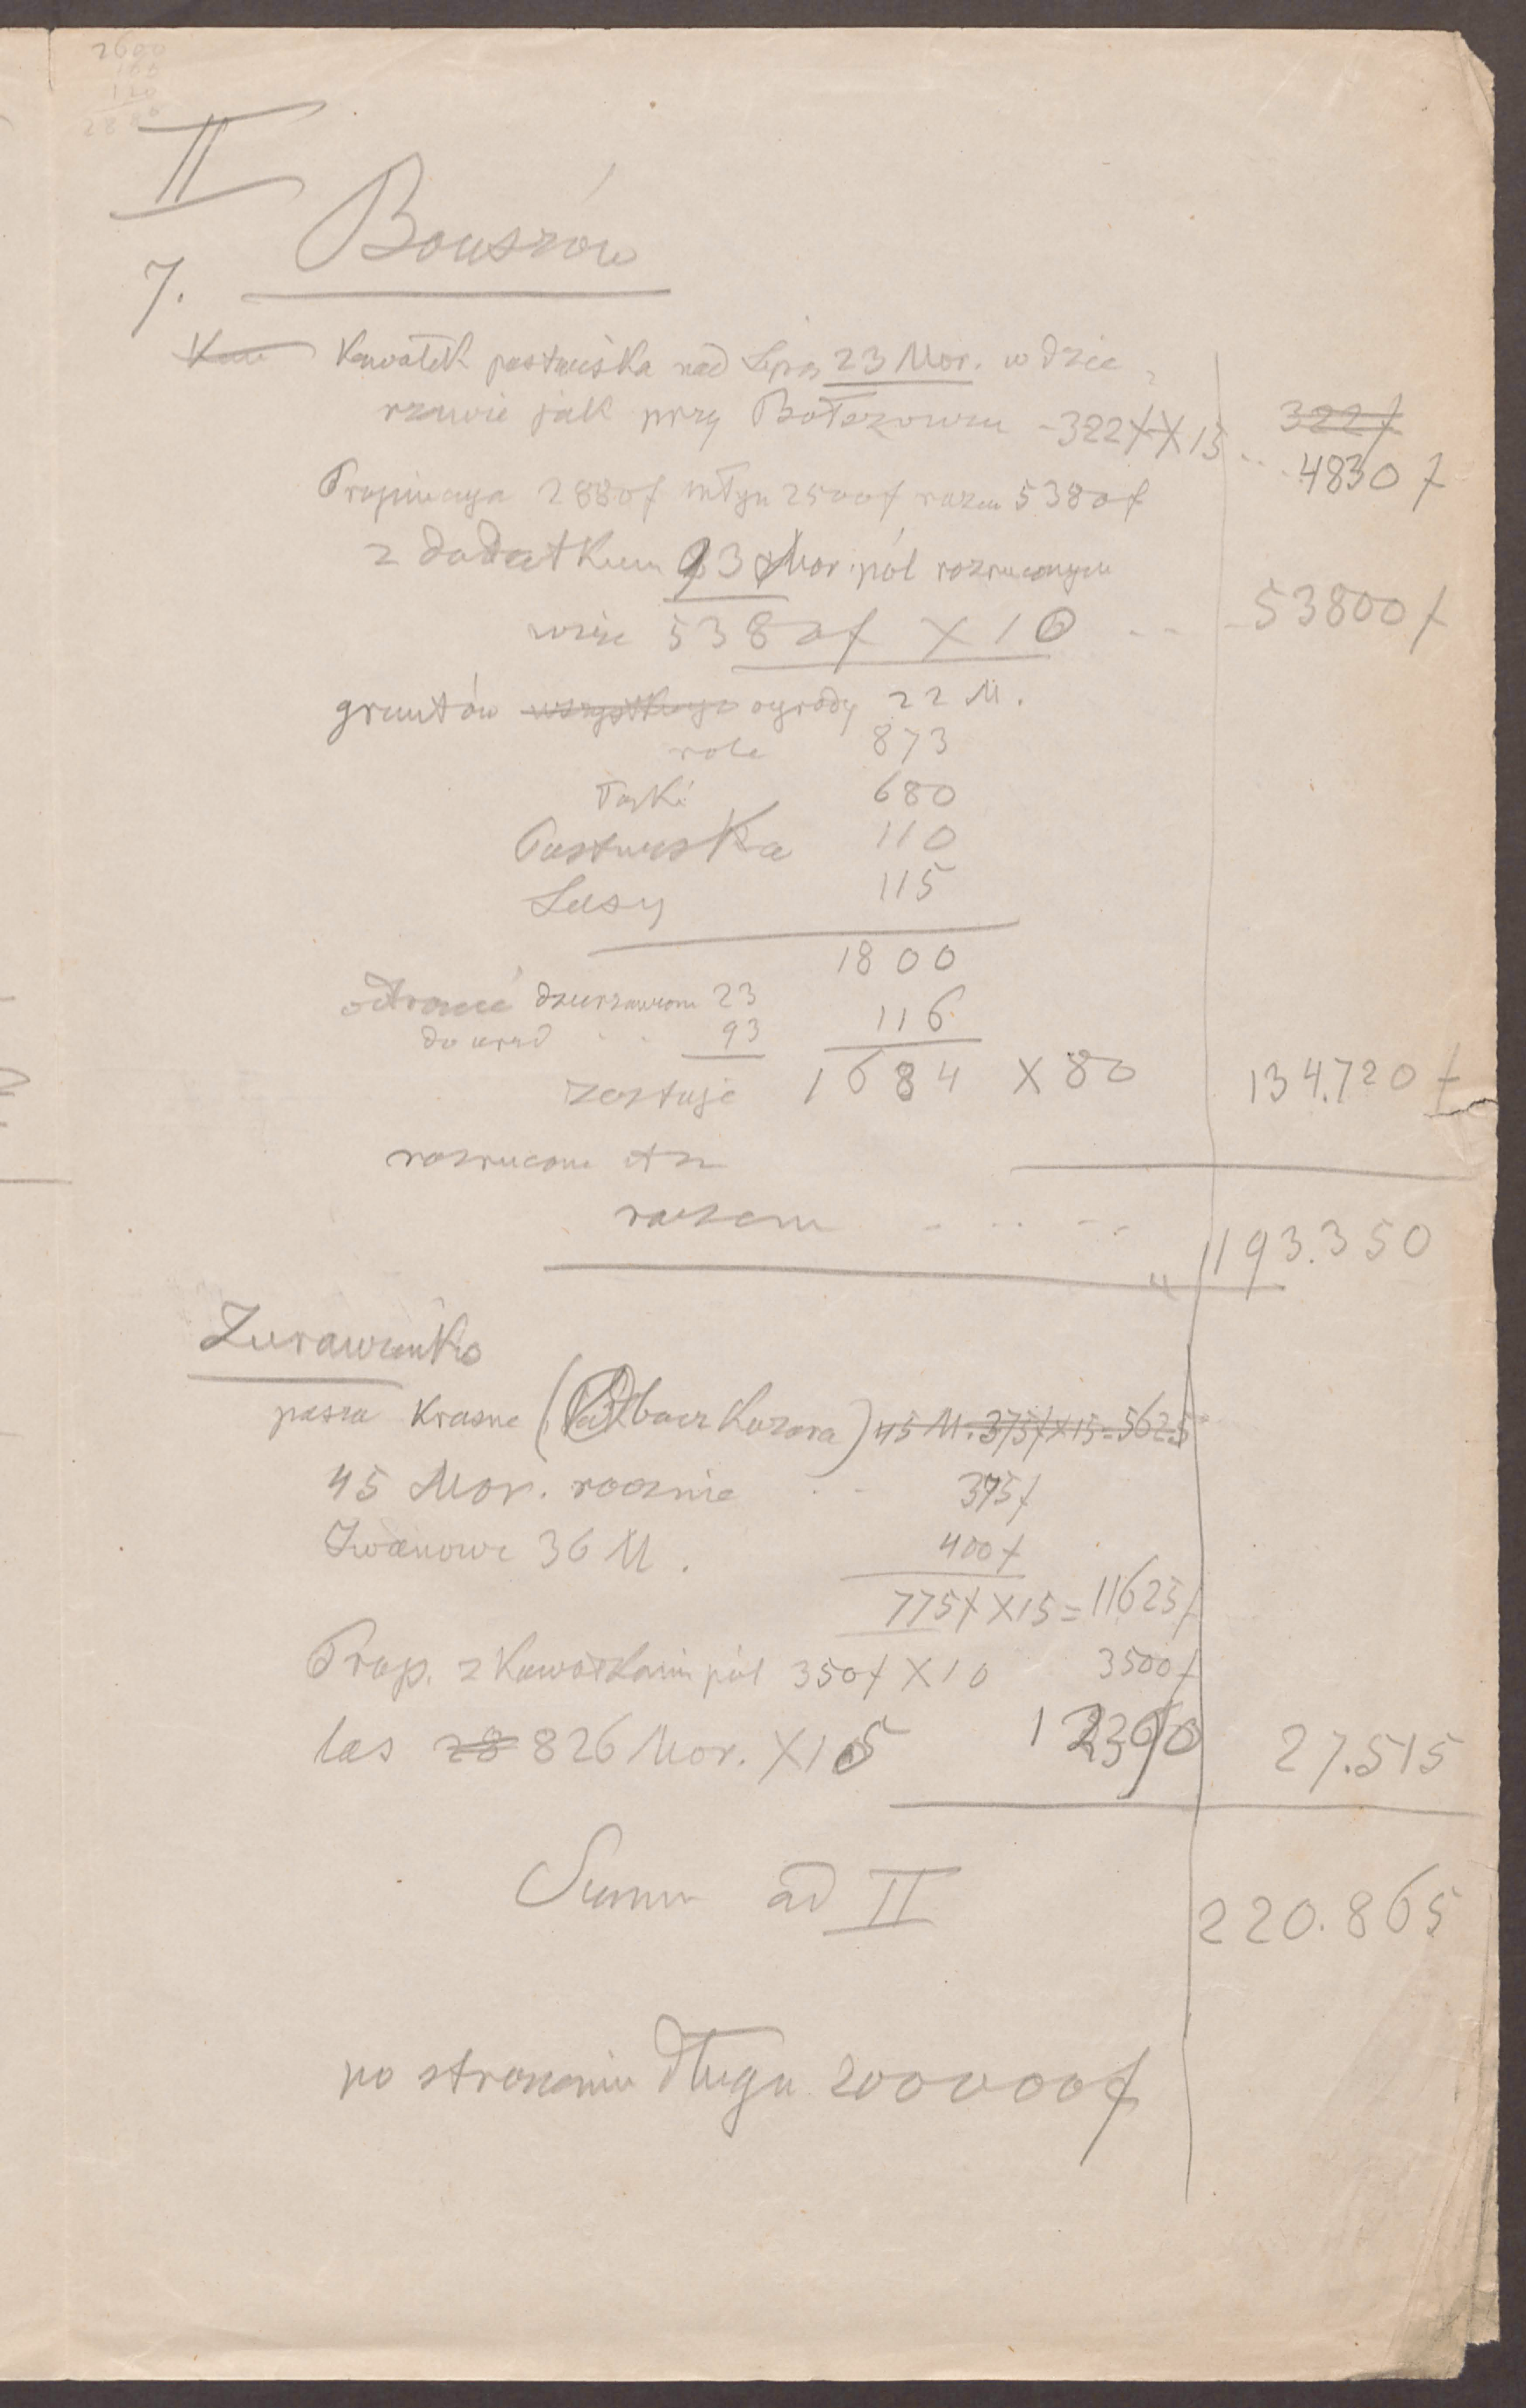 2600
100
120
II
7. Bouszów
Kawałek pastwiska nad Lipą 23 Mor. w dzier
żawie jak przy Bołszowcu - 322f X 15 ... 322f
4830 f
Propinacya 2880f młyn 2500f razem 5380f
z dodatkiem 93 Mor. pól rozrzuconych
więc 5380f X 10 - - - 53800 f
gruntów wszystkiego ogrody 22 M.
role 873
łąki 680
Pastwiska 110
Lasy 115
1800
odtrącić dzierżawione 23 116
do arend . . 93
zostaje 1684 X 80 134.720 f
rozrzucone
razem - . . - - 193.350
Żurawieńko
pasza Krasne ( ) 45 M. 375f X 15 = 5625
45 Mor. rocznie . - 375f
Iwanowe 36 M. 400f
775f X 15 = 11625f
Prop. z kawałkami pól 350f X 10 3500f
las 28 826 Mor. X 15 12390 27.515
Summa ad II 220.865
po strąceniu długu 200000f